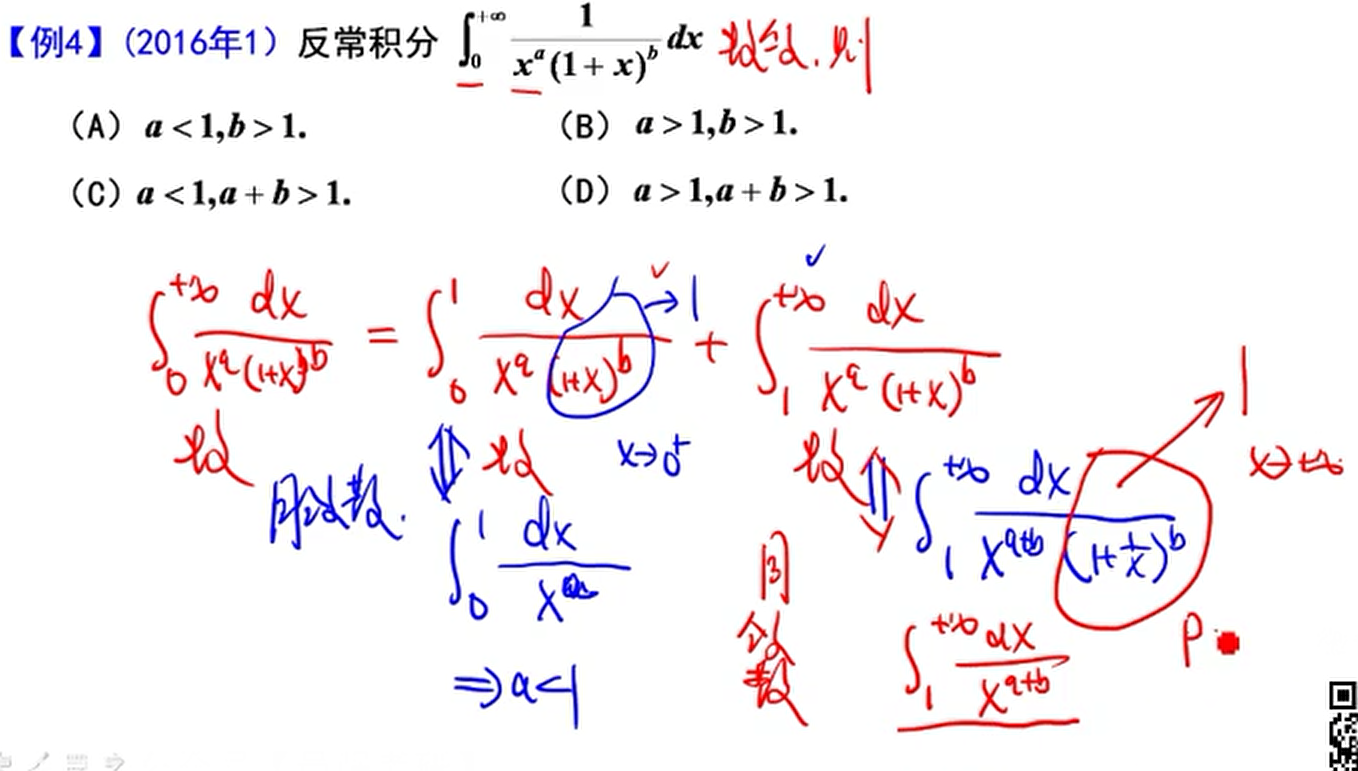 【例4】(2016年1) 反常积分 ∫₀^{+∞} 1/(xᵃ(1+x)ᵇ) dx 收敛, 则
(A) a<1,b>1. (B) a>1,b>1.
(C) a<1,a+b>1. (D) a>1,a+b>1.
∫₀^{+∞} dx/(xᵃ(1+x)ᵇ) = ∫₀^1 dx/(xᵃ(1+x)ᵇ) → 1 + ∫₁^{+∞} dx/(xᵃ(1+x)ᵇ)
收敛 ⇕ 收敛 x→0⁺ 收敛 ⇕ ∫₁^{+∞} dx/(x^{a+b}(1+1/x)ᵇ) → 1 x→+∞
同敛散. ∫₀^1 dx/xᵃ
同敛散 ∫₁^{+∞} dx/x^{a+b} P
⇒ a<1